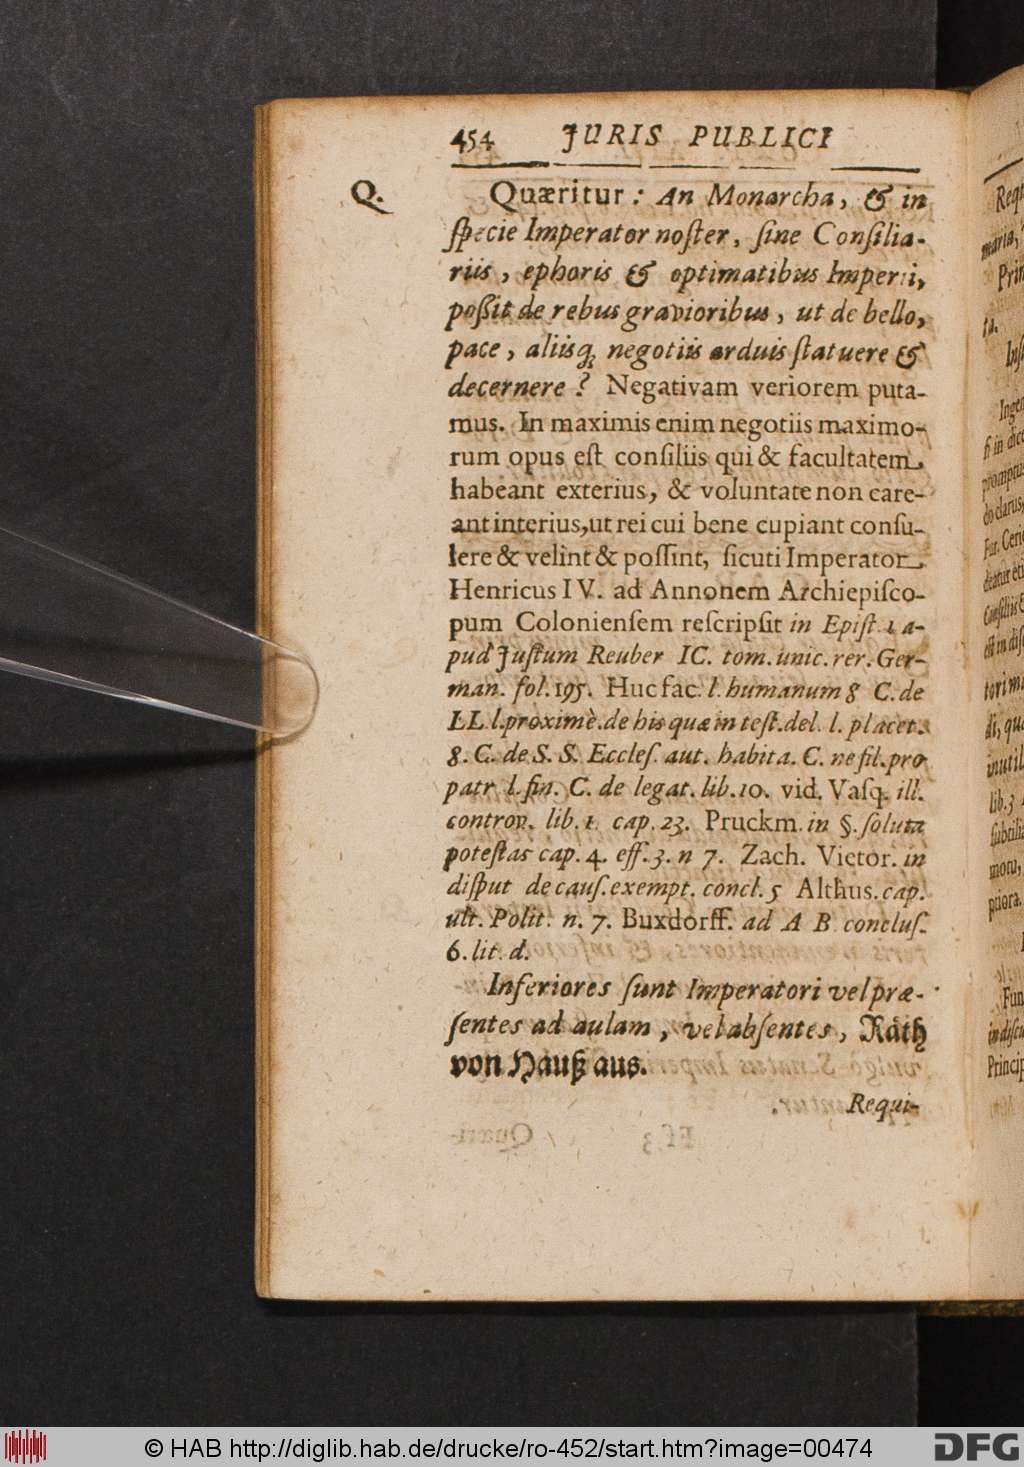 454 JURIS PUBLICI
Q. Quæritur: An Monarcha, & in
ſpecie Imperator noſter, ſine Conſilia-
riis, ephoris & optimatibus Imperii,
poſſit de rebus gravioribus, ut de bello,
pace, aliisq; negotiis arduis ſtatuere &
decernere? Negativam veriorem puta-
mus. In maximis enim negotiis maximo-
rum opus eſt conſiliis qui & facultatem
habeant exterius, & voluntate non care-
ant interius, ut rei cui bene cupiant conſu-
lere & velint & poſſint, ſicuti Imperator
Henricus IV. ad Annonem Archiepiſco-
pum Colonienſem reſcripſit in Epiſt. 1 a-
pud Juſtum Reuber IC. tom. unic. rer. Ger-
man. fol. 195. Huc fac. l. humanum 8 C. de
LL. l. proximè. de his quæ in teſt. del. l. placet.
8. C. de S. S. Eccleſ. aut. habita. C. ne fil. pro
patr l. fin. C. de legat. lib. 10. vid. Vaſq. ill.
controv. lib. 1. cap. 23. Pruckm. in §. ſoluta
poteſtas cap. 4. eff. 3. n 7. Zach. Victor. in
diſput de cauſ. exempt. concl. 5 Althus. cap.
ult. Polit. n. 7. Buxdorff. ad A B concluſ.
6. lit. d.
Inferiores ſunt Imperatori vel præ-
ſentes ad aulam, vel abſentes, Räth
von Hauß aus.
Requi-
© HAB http://diglib.hab.de/drucke/ro-452/start.htm?image=00474
DFG